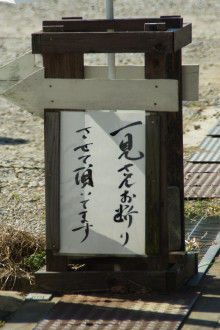 一見さんお断り
させて頂いてます